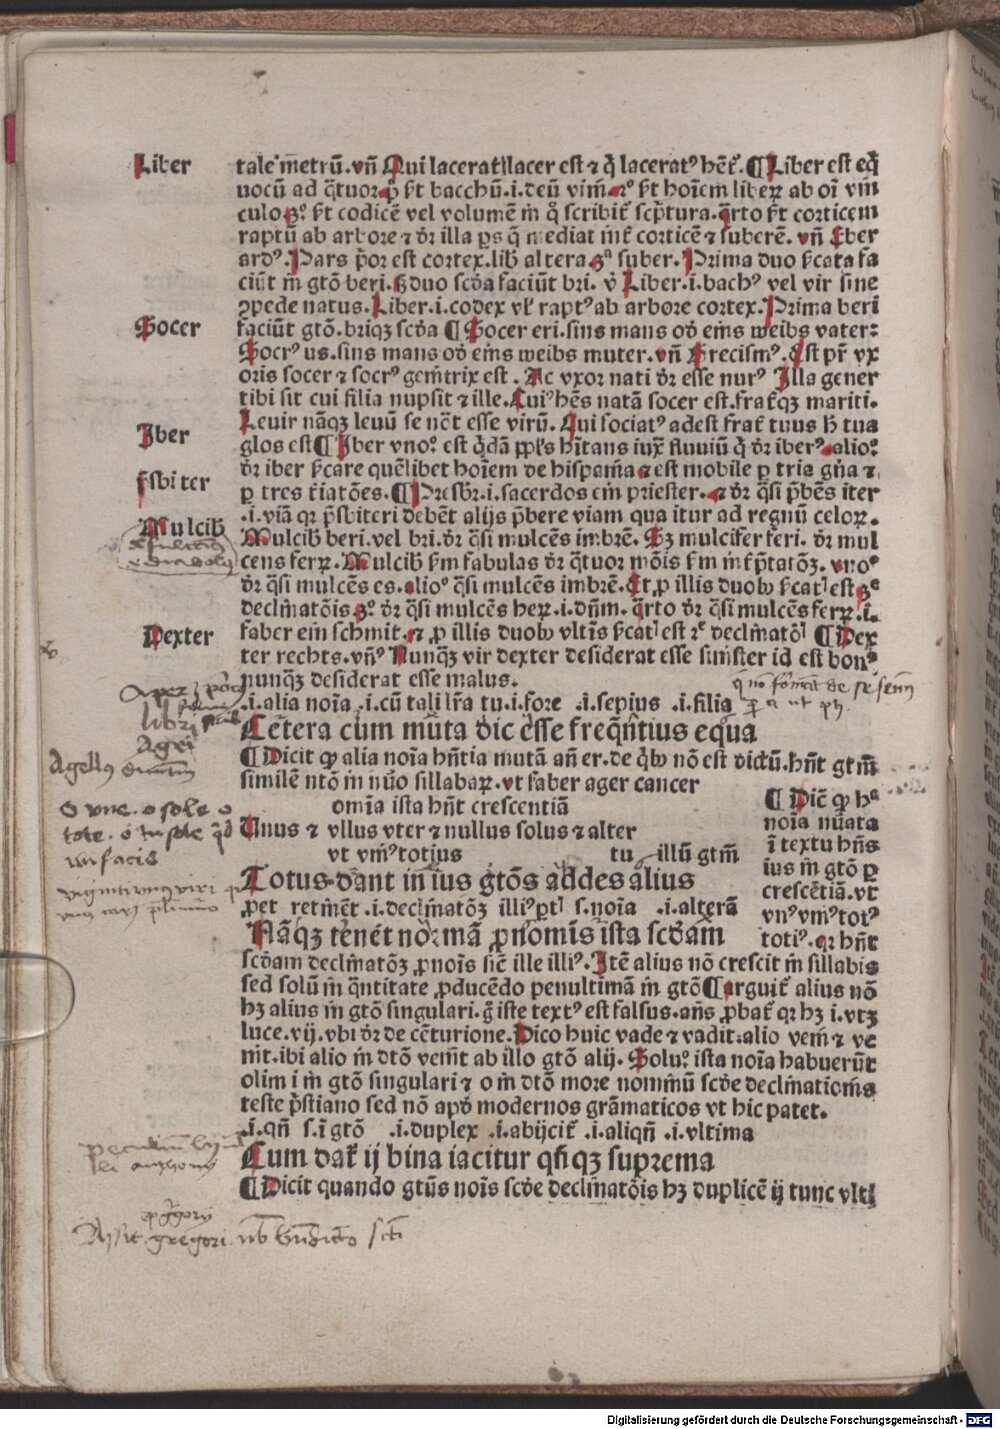 Liber
tale metrū. vñ Qui lacerat lacer est ⁊ q̄ laceratꝰ hēt. ¶ Liber est eq̄
uocū ad q̄tuor. p̄ ſt bacchū .i. deū vini. 2ꝰ ſt hoīem liberꝝ ab oī vin
culo. 3ꝰ ſt codicē vel volumē in q̊ scribit̄ scp̄tura. q̄rto ſt corticem
raptū ab arbore ⁊ dr̄ illa ꝑs q̄ mediat int̄ corticē ⁊ suberē. vñ Eber
ardꝰ. Pars p̄or est cortex. lib̄ altera. 3ª suber. Prima duo ſcata fa
ciūt in gtō beri. ſꝫ duo scd̄a faciūt bri. v̓ Liber .i. bachꝰ vel vir sine
ꝯpede natus. Liber .i. codex vl̓ raptꝰ ab arbore cortex. Prima beri
Socer
faciūt gtō. briqꝫ scd̄a ¶ Socer eri. sins mans od̓ eins weibs vater:
Socrꝰ us. sins mans od̓ eins weibs muter. vñ Grecismꝰ. Est pr̄ vx
oris socer ⁊ socrꝰ gem̄trix est. Ac vxor nati dr̄ esse nurꝰ Illa gener
tibi sit cui filia nupsit ⁊ ille. Cuiꝰ hēs natā socer est. frat̄qꝫ mariti.
Leuir nāqꝫ leuū se nōt esse virū. Qui sociatꝰ adest frat̄ tuus ħ tua
Iber
glos est ¶ Iber vnoꝰ est q̄dā pp̄ls hītans iuxͣ fluuiū q̄ dr̄ iberꝰ. alioꝰ
dr̄ iber ſcare quēlibet hoīem de hispania ⁊ est mobile ꝑ tria gn̄a ⁊
Psbiter
ꝑ tres t̄iatōes. ¶ Presbr̄ .i. sacerdos ein priester. ⁊ dr̄ q̄si p̄bēs iter
.i. viā qꝛ p̄sbiteri debēt alijs p̄bere viam qua itur ad regnū celoꝝ.
Mulcib̄
Mulcib̄ beri. vel bri. dr̄ q̄si mulcēs imbrē. Sꝫ mulcifer feri. dr̄ mul
cens ferꝝ. Mulcib̄ ſm fabulas dr̄ q̄tuor mōis ſm int̄p̄tatōꝫ. vnoº
dr̄ q̄si mulcēs es. alioº q̄si mulcēs imbrē. Et ꝓ illis duob̄ ſcat̄ est 3ª
declinatōis 3ꝰ. dr̄ q̄si mulcēs herꝝ .i. dn̄m. q̄rto dr̄ q̄si mulcēs ferꝝ .i.
Dexter
faber ein schmit. ⁊ ꝓ illis duob̄ vltīs ſcat̄ est 2ᵉ declinatōī ¶ Dex
ter rechts. vñꝰ Nunqꝫ vir dexter desiderat esse sinister id est bonꝰ
nunqꝫ desiderat esse malus.
.i. alia noīa .i. cū tali lr̄a tu .i. fore .i. sepius .i. filia
Cetera cum muta dic esse freqn̄tius equa
¶ Dicit ꝙ alia noīa hn̄tia mutā an̄ er. de q̄b̄ nō est dictū. hn̄t gtm̄
similē ntō in nūo sillabaꝝ. vt faber ager cancer
omīa ista hn̄t crescentiā
Unus ⁊ vllus vter ⁊ nullus solus ⁊ alter
vt vniꝰ totius tu illū gtm̄
Totus dant in ius gtōs addes alius
ꝑet retinēt .i. declinatōꝫ illiꝰ ꝑtl s. noīa .i. alterā
Nāqꝫ tenent normā ꝓnominis ista scd̄am
¶ Dic̄ ꝙ hª
noīa nūata
ī textu hn̄s
ius in gtō ꝑ
crescētiā. vt
vnꝰ vniꝰ totꝰ
totiꝰ. qꝛ hn̄t
scd̄am declinatōꝫ ꝓnoīs sic̄ ille illiꝰ. Itē alius nō crescit in sillabis
sed solū in q̄ntitate ꝓducēdo penultimā in gtō ¶ arguit̄ alius nō
hꝫ alius in gtō singulari. g̊ iste textꝰ est falsus. an̄s ꝓbat̄ qꝛ hꝫ i. vtꝫ
luce. vij. vbi dr̄ de cēturione. Dico huic vade ⁊ vadit. alio veni ⁊ ve
nit. ibi alio in dtō venit ab illo gtō alij. Soluꝰ. ista noīa habuerūt
olim i in gtō singulari ⁊ o in dtō more nominū scd̄e declinationis
teste p̄stiano sed nō apd̓ modernos grāmaticos vt hic patet.
.i. qn̄ s. ī gtō .i. duplex .i. abijcit̄ .i. aliqn̄ .i. vltima
Cum dat̄ ij bina iacitur qn̄qꝫ suprema
¶ Dicit quando gtūs noīs scd̄e declinatōis hꝫ duplicē ij tunc vlti
libri
Agei
Agellus
O vne . o sole o
tote . o tu sole
Assit gregori
Digitalisierung gefördert durch die Deutsche Forschungsgemeinschaft - DFG